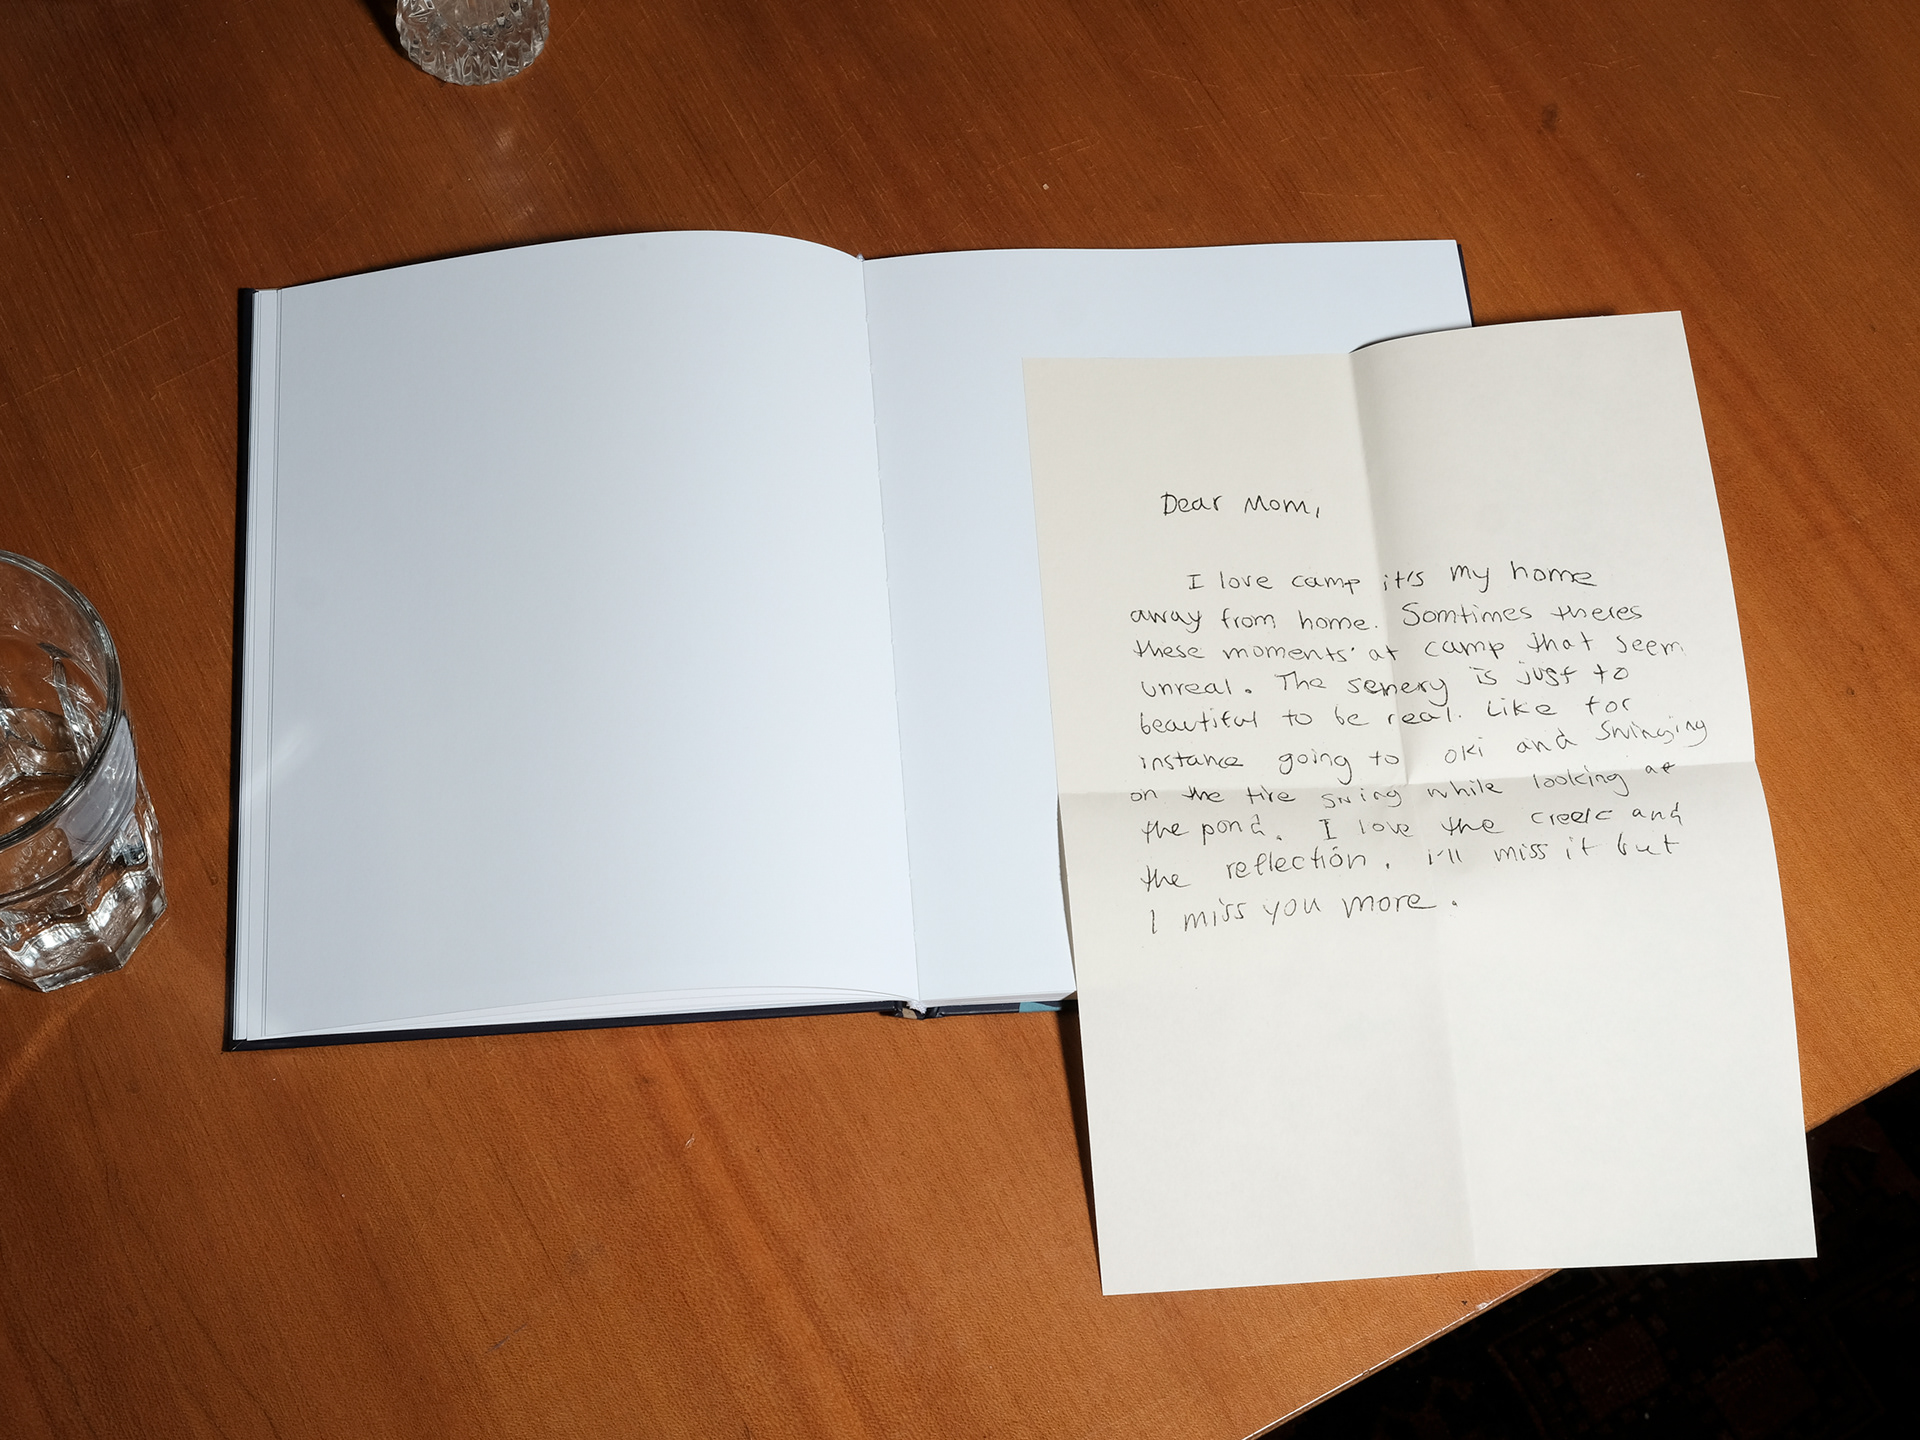 Dear Mom,
I love camp it's my home
away from home. Somtimes theres
these moments at camp that seem
unreal. The senery is just to
beautiful to be real. Like for
instance going to oki and swinging
on the tire swing while looking at
the pond. I love the creek and
the reflection. i'll miss it but
I miss you more.